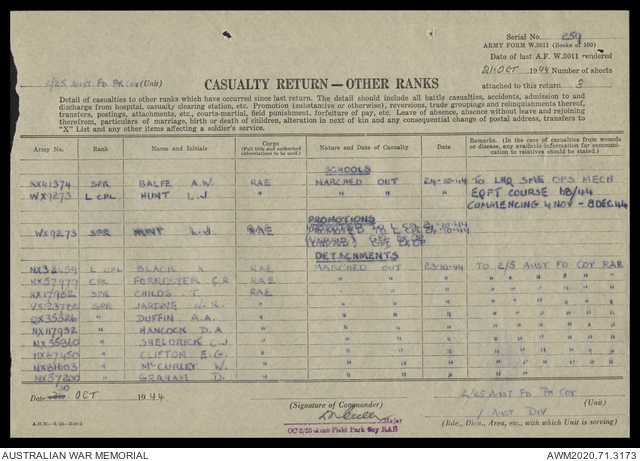 Serial No. 259
ARMY FORM W.3011 (Books of 100)
Date of last A.F. W.3011 rendered
21 OCT 1944 Number of sheets
attached to this return 3
2/25 AUST FD PK COY (Unit)
CASUALTY RETURN — OTHER RANKS
Detail of casualties to other ranks which have occurred since last return. The detail should include all battle casualties, accidents, admission to and
discharge from hospital, casualty clearing station, etc. Promotion (substantive or otherwise), reversions, trade groupings and relinquishments thereof,
transfers, postings, attachments, etc., courts-martial, field punishment, forfeiture of pay, etc. Leave of absence, absence without leave and rejoining
therefrom, particulars of marriage, birth or death of children, alteration in next of kin and any consequential change of postal address, transfers to
"X" List and any other items affecting a soldier's service.
Army No. Rank Name and Initials Corps (Full title and authorised abbreviations to be used.) Nature and Date of Casualty Date Remarks. (In the case of casualties from wounds or disease, any available information for communication to relatives should be stated.)
SCHOOLS
NX41374 SPR BALFE A.W. RAE MARCHED OUT 24-10-44 TO LHQ SME OPS MECH
WX9273 L CPL HUNT L.J. " " " " EQPT COURSE 68/44
COMMENCING 4 NOV - 8 DEC 44
PROMOTIONS
WX9273 SPR HUNT L.J. RAE PROMOTED TO L CPL 24-10-44
DETACHMENTS
NX32459 L CPL BLACK K RAE MARCHED OUT 23-10-44 TO 2/5 AUST FD COY RAE
NX57979 CPL FORRESTER C.R RAE " " " " " " " " "
NX17982 SPR CHILDS T. RAE " " " " " " " " "
SPR JARDING " " " " " " " " " "
QX35326 " DUFFIN A.A. " " " " " " " " " "
NX117932 " HANCOCK D.A " " " " " " " " " "
" SHELDRICK C.J. " " " " " " " " " "
NX67450 " CLIFTON E.G. " " " " " " " " " "
NX81603 " McCURLEY W. " " " " " " " " " "
NX57200 " GRAHAM D. " " " " " " " " " "
Date 30 OCT 1944
(Signature of Commander)
Major
OC 2/25 Aust Field Park Coy RAE
2/25 AUST FD PK COY
(Unit)
1 AUST DIV
(Bde., Divn., Area, etc., with which Unit is serving)
AUSTRALIAN WAR MEMORIAL
AWM2020.71.3173